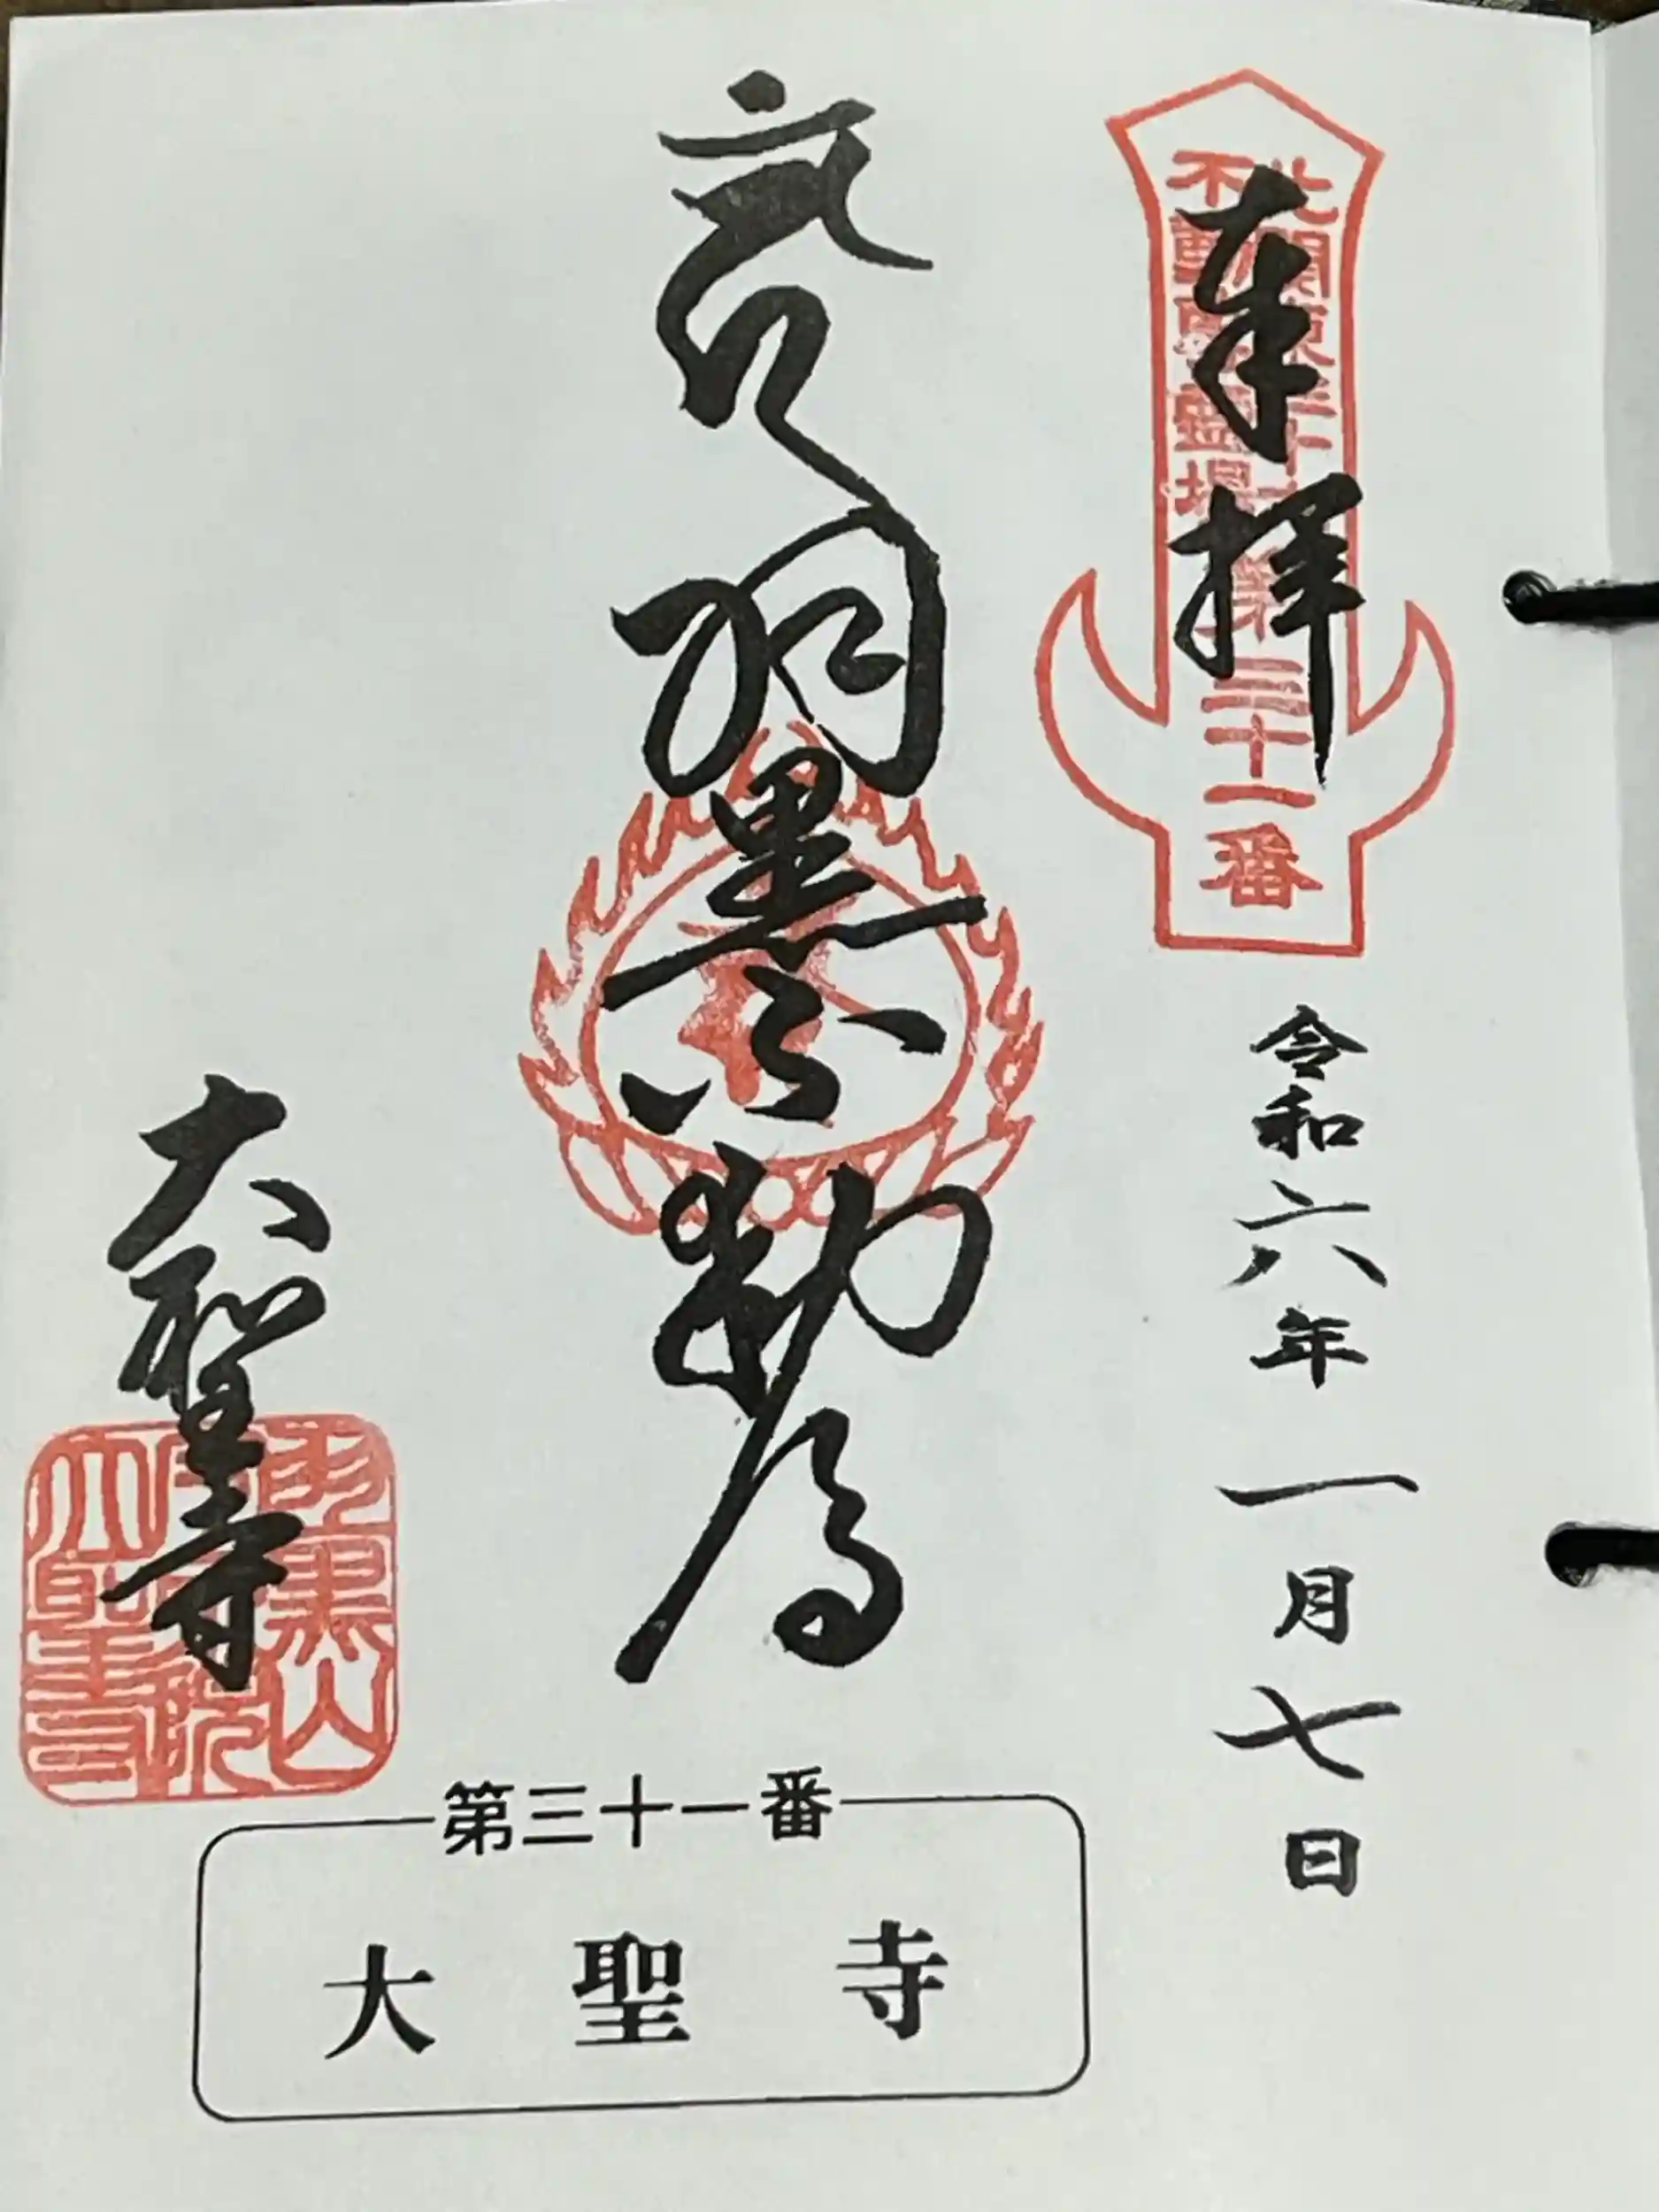 奉拝
北関東三十六
不動尊霊場
第三十一番
令和六年一月七日
羽黒不動尊
大聖寺
羽黒山
大聖寺
第三十一番
大聖寺